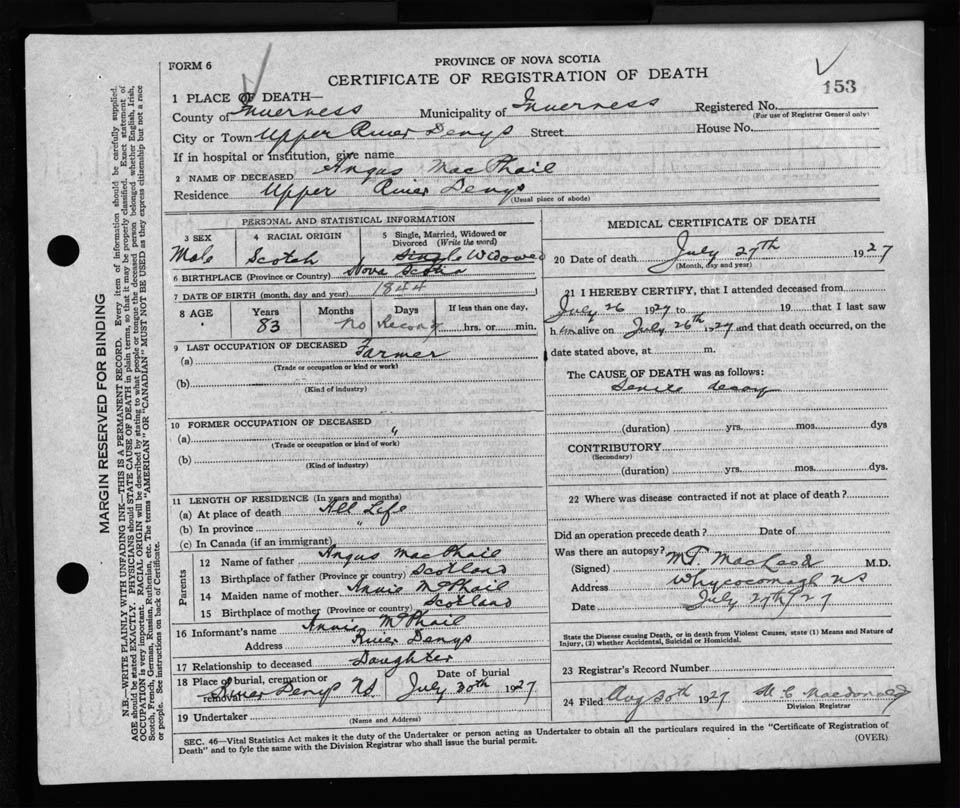 FORM 6
PROVINCE OF NOVA SCOTIA
CERTIFICATE OF REGISTRATION OF DEATH
153
1 PLACE OF DEATH—
County of Inverness Municipality of Inverness Registered No.
(For use of Registrar General only)
City or Town Upper River Denys Street House No.
If in hospital or institution, give name
2 NAME OF DECEASED Angus MacPhail
Residence Upper River Denys
(Usual place of abode)
PERSONAL AND STATISTICAL INFORMATION
3 SEX Male
4 RACIAL ORIGIN Scotch
5 Single, Married, Widowed or Divorced (Write the word) Single Widowed
6 BIRTHPLACE (Province or Country) Nova Scotia
7 DATE OF BIRTH (month, day and year) 1844
8 AGE Years 83 Months No Days Record If less than one day, hrs. or min.
9 LAST OCCUPATION OF DECEASED
(a) Farmer
(Trade or occupation or kind or work)
(b)
(Kind of industry)
10 FORMER OCCUPATION OF DECEASED
(a) "
(Trade or occupation or kind of work)
(b)
(Kind of industry)
11 LENGTH OF RESIDENCE (In years and months)
(a) At place of death All Life
(b) In province "
(c) In Canada (if an immigrant)
Parents
12 Name of father Angus MacPhail
13 Birthplace of father (Province or country) Scotland
14 Maiden name of mother Annie McPhail
15 Birthplace of mother (Province or country) Scotland
16 Informant's name Annie McPhail
Address River Denys
17 Relationship to deceased Daughter
18 Place of burial, cremation or removal River Denys N.S. Date of burial July 30th 1927
19 Undertaker
(Name and Address)
MEDICAL CERTIFICATE OF DEATH
20 Date of death July 27th 1927
(Month, day and year)
21 I HEREBY CERTIFY, that I attended deceased from
July 26 1927 to 19 that I last saw
h im alive on July 26th 1927 and that death occurred, on the
date stated above, at m.
The CAUSE OF DEATH was as follows:
Senile decay
(duration) yrs. mos. dys
CONTRIBUTORY
(Secondary)
(duration) yrs. mos. dys.
22 Where was disease contracted if not at place of death?
Did an operation precede death? Date of
Was there an autopsy?
(Signed) M.T. MacLeod M.D.
Address Whycocomagh N S
Date July 27th/27
State the Disease causing Death, or in death from Violent Causes, state (1) Means and Nature of
Injury, (2) whether Accidental, Suicidal or Homicidal.
23 Registrar's Record Number
24 Filed Aug 30th 1927 M. C. Macdonald
Division Registrar
SEC. 46—Vital Statistics Act makes it duty of the Undertaker or person acting as Undertaker to obtain all the particulars required in the "Certificate of Registration of
Death" and to fyle the same with the Division Registrar who shall issue the burial permit.
(OVER)
MARGIN RESERVED FOR BINDING
N.B.—WRITE PLAINLY WITH UNFADING INK—THIS IS A PERMANENT RECORD. Every item of information should be carefully supplied.
AGE should be stated EXACTLY. PHYSICIANS should STATE CAUSE OF DEATH in plain terms, so that it may be properly classified. Exact statement of
OCCUPATION is very important. RACIAL ORIGIN will be described by stating to what people or tongue the deceased person belonged whether English, Irish,
Scotch, French, German, Russian, Ruthenian, etc. The terms "AMERICAN" OR "CANADIAN" MUST NOT BE USED as they express citizenship but not a race
or people. See instructions on back of Certificate.